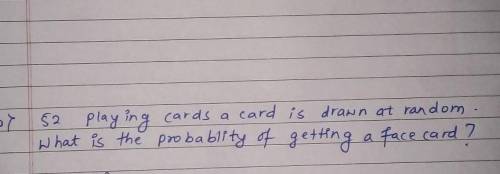 52 playing cards a card is drawn at random.
What is the probablity of getting a face card?